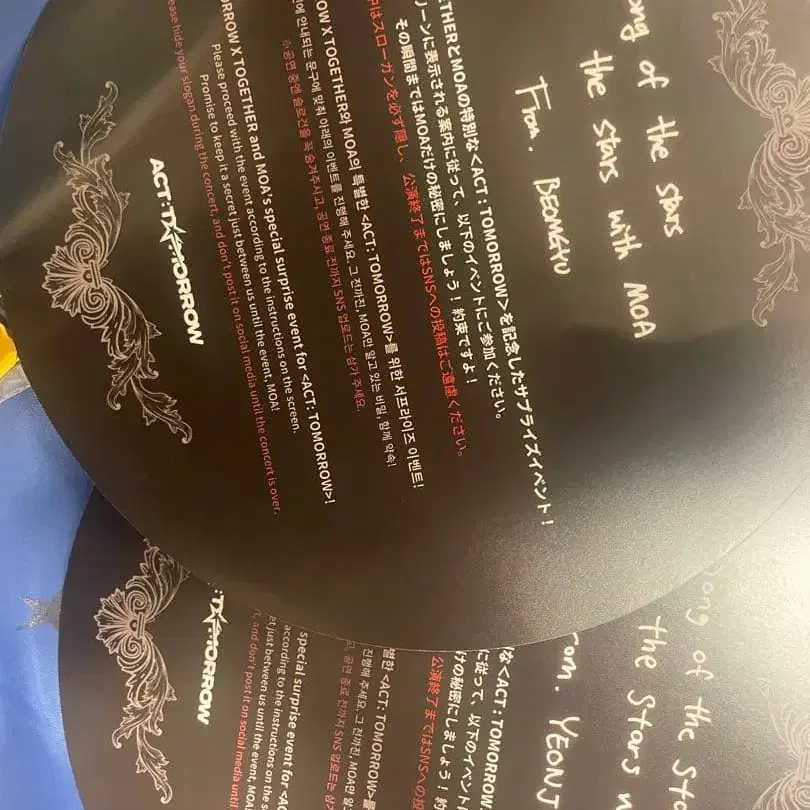 ong of the stars
the stars with MOA
From. BEOMGYU
ETHERとMOAの特別な<ACT : TOMORROW>を記念したサプライズイベント!
リーンに表示される案内に従って、以下のイベントにご参加ください。
その瞬間まではMOAだけの秘密にしましょう!約束ですよ!
中はスローガンを必ず隠し、公演終了まではSNSへの投稿はご遠慮ください。
ROW X TOGETHER와 MOA의 특별한 <ACT: TOMORROW>를 위한 서프라이즈 이벤트!
에 안내되는 문구에 맞춰 아래의 이벤트를 진행해 주세요. 그 전까진, MOA만 알고 있는 비밀, 함께 약속!
※공연 중엔 슬로건을 꼭 숨겨주시고, 공연 종료 전까지 SNS 업로드는 삼가 주세요.
MORROW X TOGETHER and MOA's special surprise event for <ACT: TOMORROW>!
Please proceed with the event according to the instructions on the screen.
Promise to keep it a secret just between us until the event, MOA!
lease hide your slogan during the concert, and don't post it on social media until the concert is over.
ACT:TOMORROW
Song of the Sta
the Stars w
From. YEONJ
な<ACT: TOMORROW
に従って、以下のイベント
けの秘密にしましょう!約
公演終了まではSNSへの投
별한 <ACT: TOMORROW>를
진행해 주세요. 그 전까진, MOA만
고, 공연 종료 전까지 SNS 업로드는 삼가
special surprise event for <ACT: TOM
according to the instructions on the s
et just between us until the event, MOA!
, and don't post it on social media until
:TOMORROW